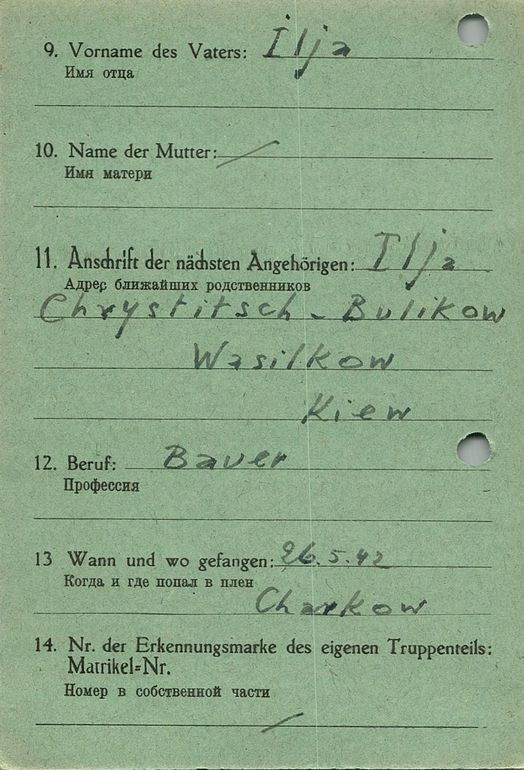 9. Vorname des Vaters: Ilja
Имя отца
10. Name der Mutter: /
Имя матери
11. Anschrift der nächsten Angehörigen: Ilja
Адрес ближайших родственников
Chrystitsch - Bulikow
Wasilkow
Kiew
12. Beruf: Bauer
Профессия
13 Wann und wo gefangen: 26.5.42
Когда и где попал в плен
Charkow
14. Nr. der Erkennungsmarke des eigenen Truppenteils:
Matrikel=Nr.
Номер в собственной части
/